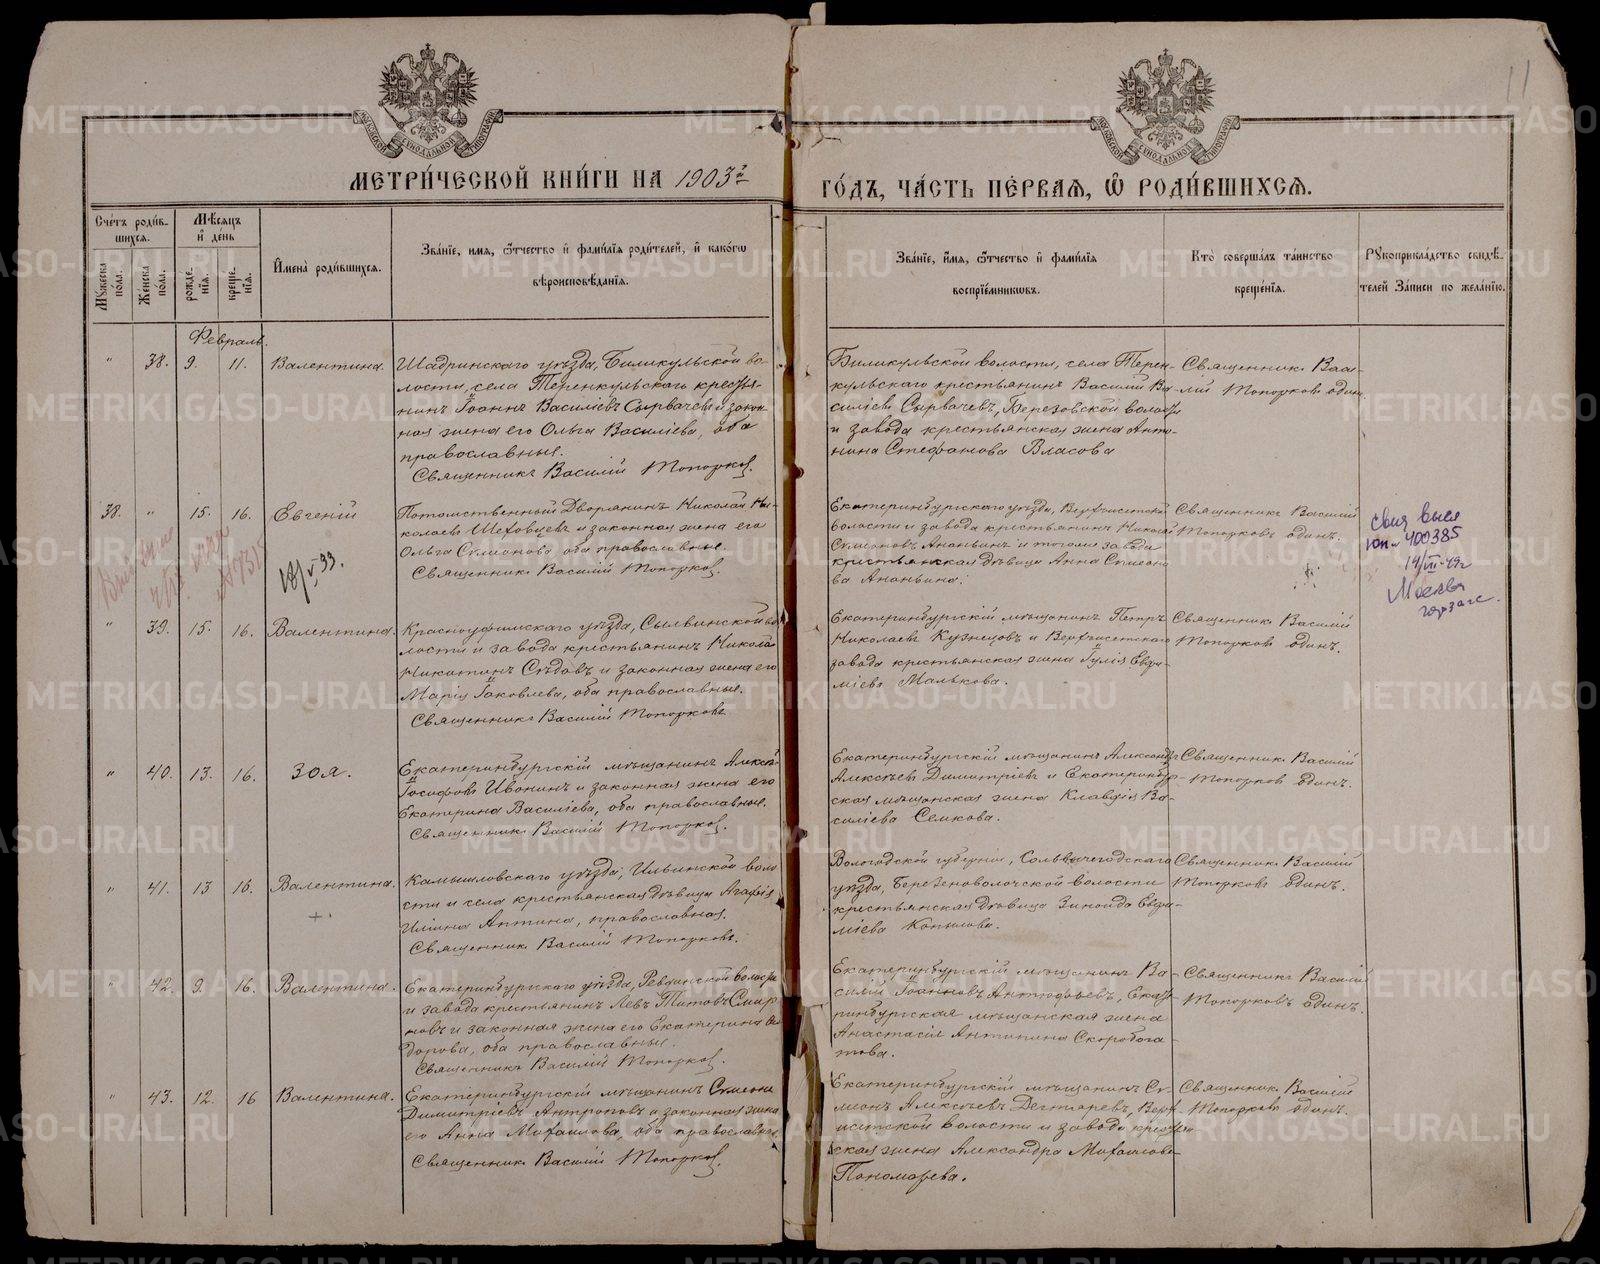 11
МЕТРИ́ЧЕСКОЙ КНИ́ГИ НА 1903 й
ГО́ДЪ, ЧА́СТЬ ПЕ́РВАЯ, Ѿ РОДИ́ВШИХСЯ.
Сче́тъ роди́в-
шихся.
Мѣ́сяцъ
и де́нь
Мꙋжеска по́ла.
Же́нска по́ла.
рожде́нїя.
креще́нїя.
И҆мена̀ роди́вшихся.
Зва́нїе, имя, ѻ҆́тчество и҆ фами́лїя роди́телей, и҆ како́гѡ
вѣроисповѣ́данїя.
Зва́нїе, и҆́мя, ѻ҆́тчество и҆ фами́лїя
воспрїе́мниковъ.
Кто̀ соверша́лъ та́инство
креще́нїя.
Рꙋкоприкла́дство свидѣ́-
телей За́писи по жела́нїю.
Февраль.
" 38. 9. 11. Валентина.
Шадринскаго уѣзда, Биликульской во-
лости, села Теренкульскаго кресть-
янинъ Іоаннъ Василіевъ Сырвачевъ и закон-
ная жена его Ольга Василіева, оба
православные.
Священникъ Василій Топорковъ.
Биликульской волости, села Терен-
кульскаго крестьянинъ Василій Ва-
силіевъ Сырвачевъ, Березовской волости
и завода крестьянская жена Анто-
нина Стефанова Власова
Священникъ Васи-
лій Топорковъ один
38. " 15. 16. Евгеній
Потомственный Дворянинъ Николай Ни-
колаевъ и законная жена его
Ольга Симеонова, оба православные.
Священникъ Василій Топорковъ.
18/V 33.
Екатеринбургскаго уѣзда, Верхисетской
волости и завода крестьянинъ Николай
Симеоновъ Ананьинъ и тогоже завода
крестьянская дѣвица Анна Симеоно-
ва Ананьина.
Священникъ Василій
Топорковъ одинъ.
400385
14/VII-49г
Москва
горзагс.
" 39. 15. 16. Валентина.
Красноуфимскаго уѣзда, Сылвинской во-
лости и завода крестьянинъ Николай
Никитинъ Сѣдовъ и законная жена его
Марія Іаковлева, оба православные.
Священникъ Василій Топорковъ
Екатеринбургскій мѣщанинъ Петръ
Николаевъ Кузнецовъ и Верхисетскаго
завода крестьянская жена Іулія Евфи-
міева Малькова.
Священникъ Василій
Топорковъ одинъ.
" 40. 13. 16. Зоя.
Екатеринбургскій мѣщанинъ Алексѣй
Іосифовъ Ивонинъ и законная жена его
Екатерина Василіева, оба православные.
Священникъ Василій Топорковъ.
Екатеринбургскій мѣщанинъ Александръ
Алексѣевъ Димитріевъ и Екатеринбург-
ская мѣщанская жена Клавдія Ва-
силіева Семкова.
Священникъ Василій
Топорковъ одинъ.
" 41. 13 16. Валентина.
Камышловскаго уѣзда, Ильинской воло-
сти и села крестьянская дѣвица Агафія
Ильина Аптина, православная.
Священникъ Василій Топорковъ.
Вологодской губерніи, Сольвычегодскаго
уѣзда, Березоноволочской волости
крестьянская дѣвица Зиноида Евфи-
міева Копылова.
Священникъ Василій
Топорковъ одинъ.
" 42. 9. 16. Валентина.
Екатеринбургскаго уѣзда, Ревдинской волости
и завода крестьянинъ Левъ Титовъ Смир-
новъ и законная жена его Екатерина Ѳео-
дорова, оба православные.
Священникъ Василій Топорковъ.
Екатеринбургскій мѣщанинъ Ва-
силій Іоанновъ Антюфьевъ, Екате-
ринбургская мѣщанская жена
Анастасія Антипина Скоробога-
това.
Священникъ Василій
Топорковъ одинъ.
" 43. 12. 16 Валентина.
Екатеринбургскій мѣщанинъ Симеонъ
Димитріевъ Антроповъ и законная жена
его Анна Михаилова, оба православные.
Священникъ Василій Топорковъ.
Екатеринбургскій мѣщанинъ Си-
меонъ Алексѣевъ Дегтяревъ, Верх-
исетской волости и завода крестьян-
ская жена Александра Михаилова
Пономарева.
Священникъ Василій
Топорковъ одинъ.
METRIKI.GASO-URAL.RU